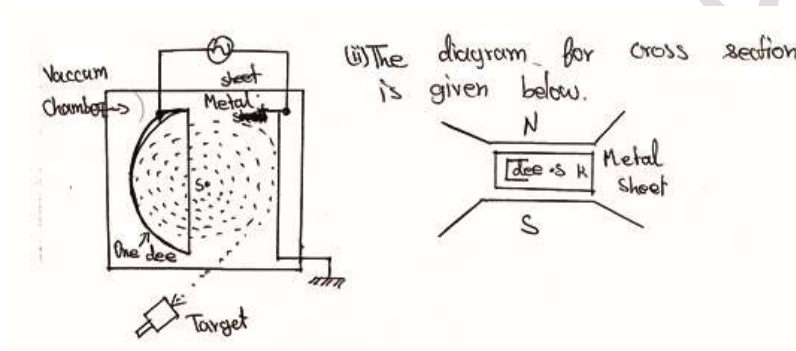 Vaccum
Chamber
sheet
Metal
S
One dee
Target
(ii) The diagram for cross section
is given below.
N
dee .s k
Metal
Sheet
S